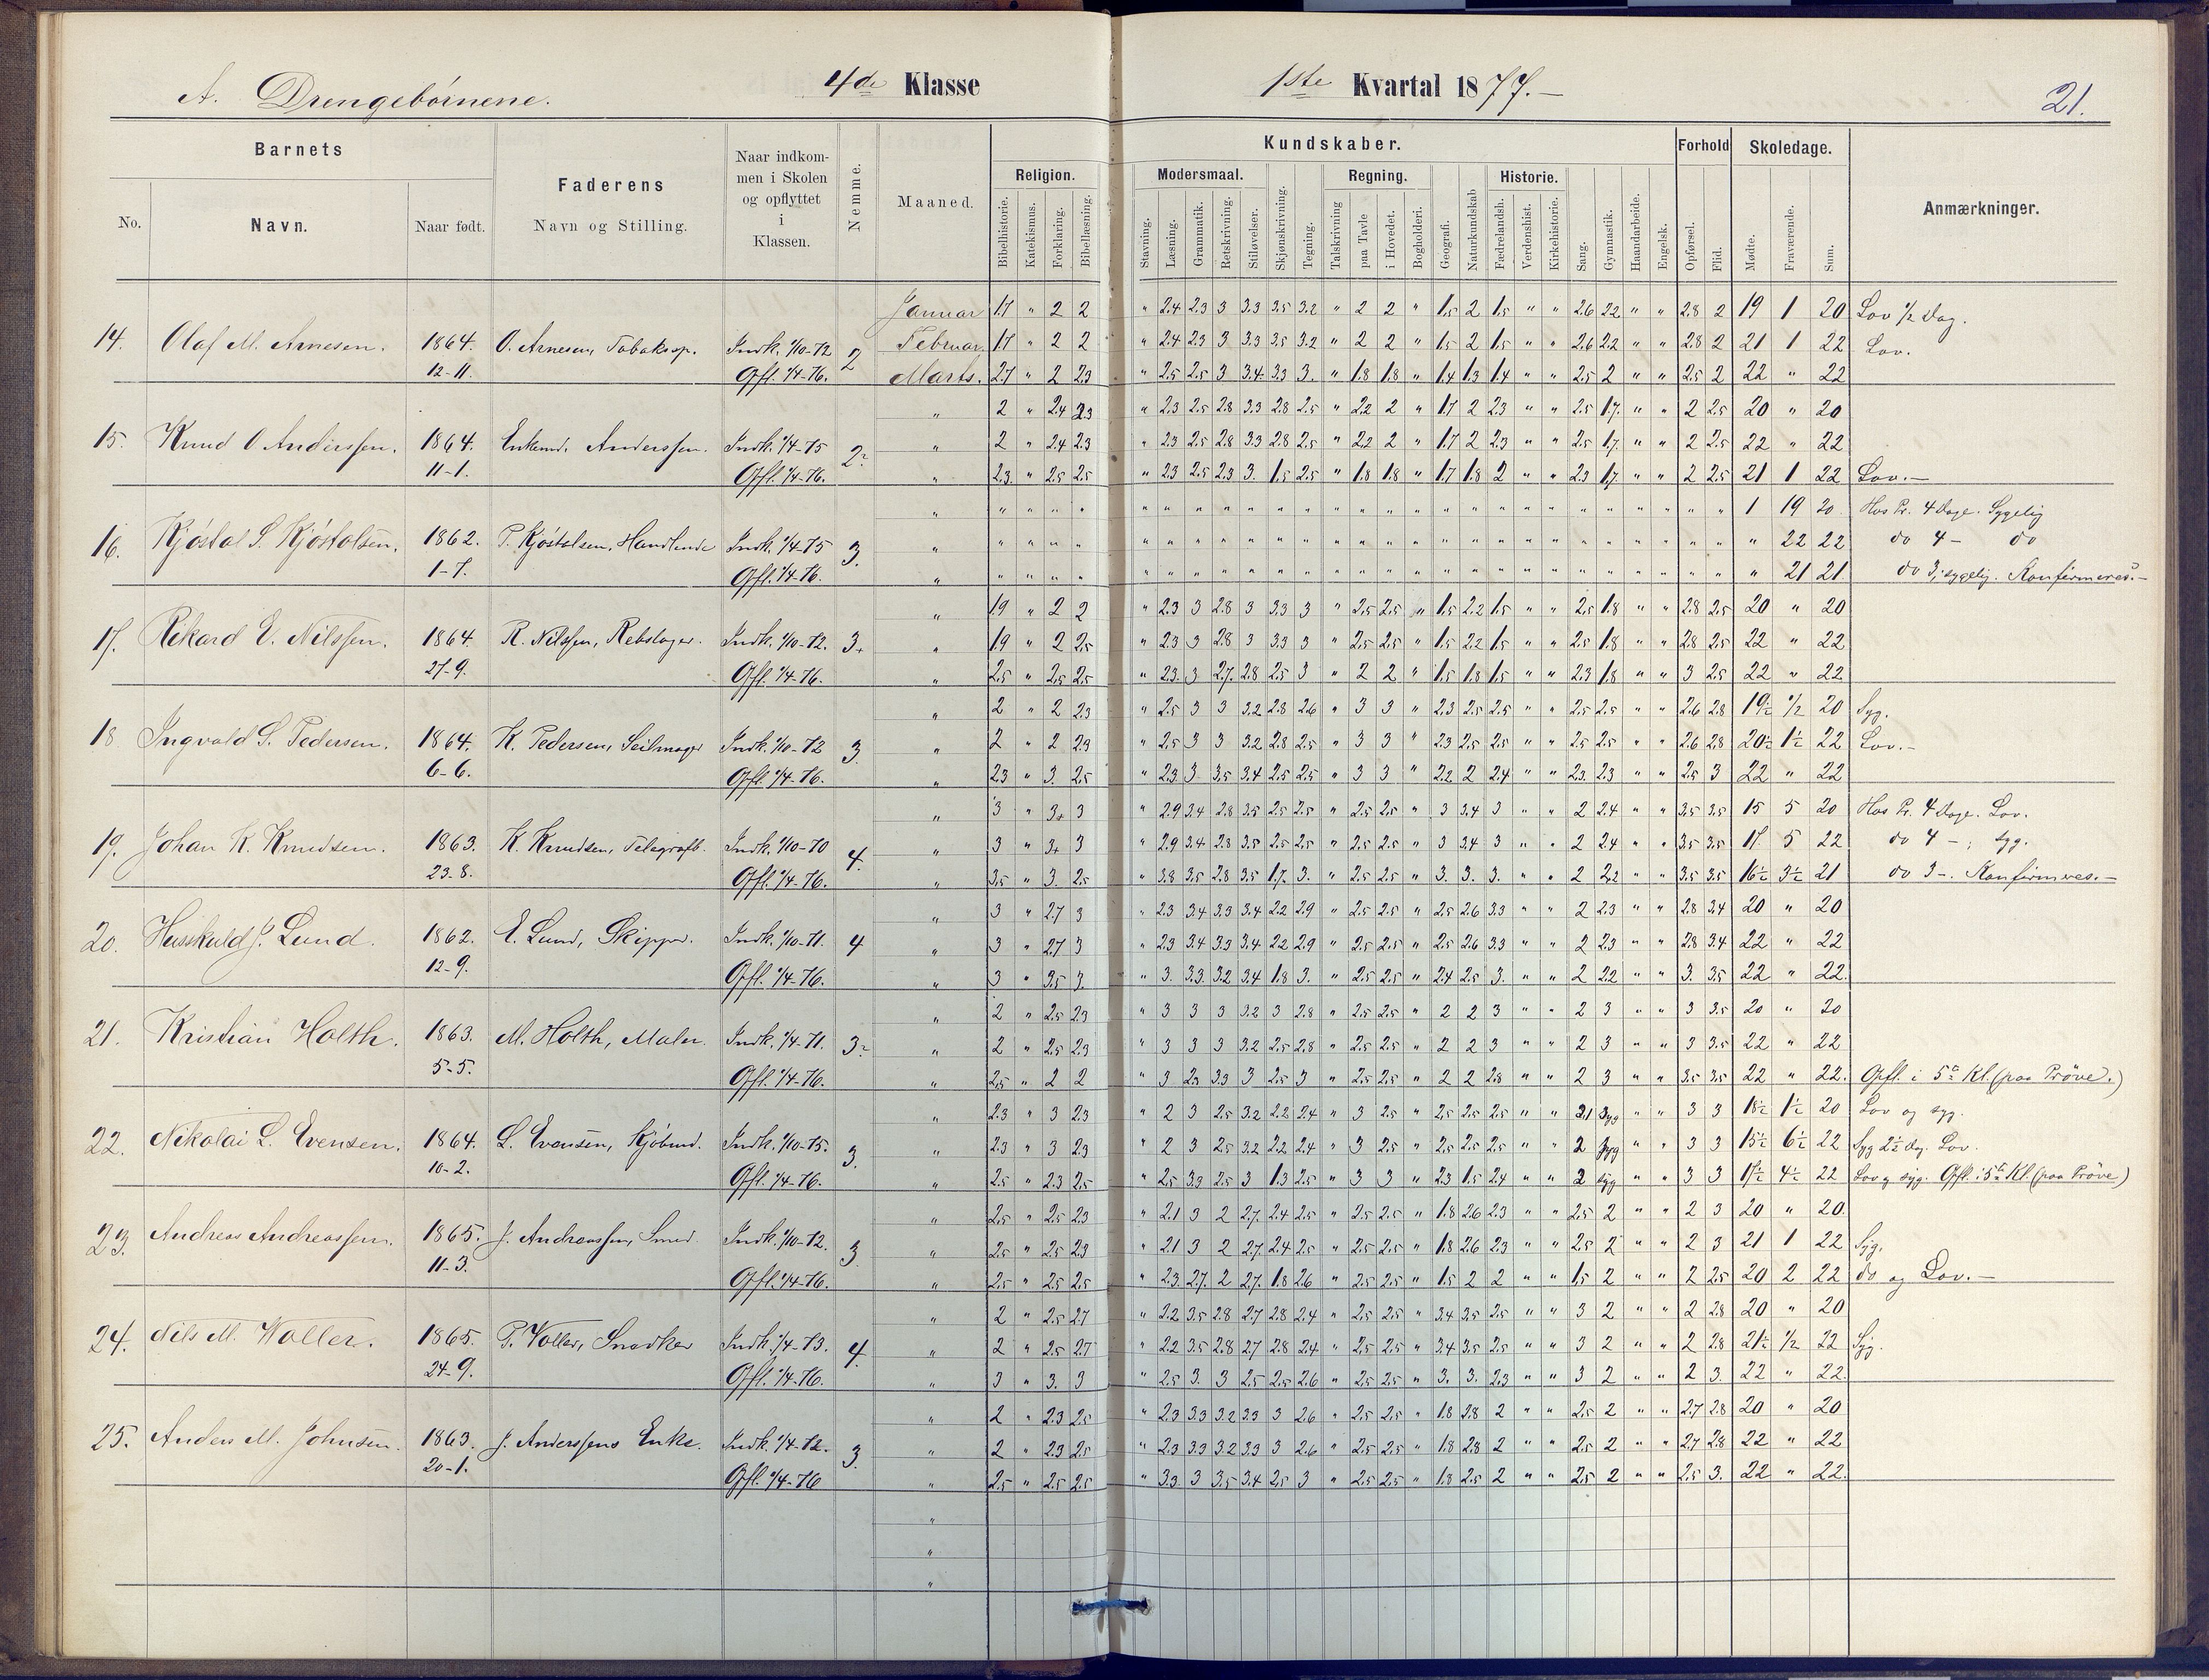 A. Drengebörnene. 4de Klasse 1ste Kvartal 1877.— 21.
Barnets Faderens Naar indkommen i Skolen og opflyttet i Klassen. Nemme. Maaned. Kundskaber. Forhold Skoledage. Anmærkninger.
No. Navn. Naar født. Navn og Stilling. Religion. Modersmaal. Regning. Historie.
Bibelhistorie. Katekismus. Forklaring. Bibellæsning. Stavning. Læsning. Grammatik. Retskrivning. Stiløvelser. Skjønskrivning. Tegning. Talskrivning paa Tavle i Hovedet. Bogholderi. Geografi. Naturkundskab Fædrelandsh. Verdenshist. Kirkehistorie. Sang. Gymnastik. Haandarbeide. Engelsk. Opførsel. Flid. Mødte. Fraværende. Sum.
Januar 1.7 " 2 2 " 2.4 2.3 3 3.3 3.5 3.2 " 2 2 " 1.5 2 1.5 " " 2.6 2.2 " " 2.8 2 19 1 20 Lov 1/2 Dag.
14. Olaf M. Arnesen. 1864. O. Arnesen, Tobaksp. Indk. 1/10-72 2 Februar. 1.7 " 2 2 " 2.4 2.3 3 3.3 3.5 3.2 " 2 2 " 1.5 2 1.5 " " 2.6 2.2 " " 2.8 2 21 1 22 Lov.
12-11. Opfl. 1/4-76. Marts. 2.7 " 2 2.3 " 2.5 2.5 3 3.4 3.3 3. " 1.8 1.8 " 1.4 1.3 1.4 " " 2.5 2 " " 2.5 2 22 " 22
" 2 " 2.4 2.3 " 2.3 2.5 2.8 3.3 2.8 2.5 " 2.2 2 " 1.7 2 2.3 " " 2.5 1.7. " " 2 2.5 20 " 20
15. Knud O Anderssen. 1864. Enkemd. Anderssen. Indk. 1/4-75 2 " 2 " 2.4 2.3 " 2.3 2.5 2.8 3.3 2.8 2.5 " 2.2 2 " 1.7 2 2.3 " " 2.5 1.7. " " 2 2.5 22 " 22
11-1. Opfl. 1/4-76. " 2.3. " 2.5 2.5 " 2.3 2.5 2.3 3. 1.5 2.5 " 1.8 1.8 " 1.7 1.8 2 " " 2.3 1.7. " " 2 2.5 21 1 22 Lov.—
" " " " " " " " " " " " " " " " " " " " " " " " " " " 1 19 20. Hos Pr. 4 Dage. Sygelig
16. Kjöstol S. Kjöstolsen. 1862. T. Kjöstolsen, Handlende Indk. 1/4-75 3. " " " " " " " " " " " " " " " " " " " " " " " " " " " " 22 22 do 4 — do
1-7. Opfl. 1/4-76. " " " " " " " " " " " " " " " " " " " " " " " " " " " " 21 21. do 3, sygelig. Konfirmeres.—
" 1.9 " 2 2 " 2.3 3 2.8 3 3.3 3 " 2.5 2.5 " 1.5 2.2 1.5 " " 2.5 1.8 " " 2.8 2.5 20 " 20
17. Rikard E. Nilssen. 1864. R. Nilssen, Rebslager. Indk. 1/10-72. 3+ " 1.9 " 2 2.5 " 2.3 3 2.8 3 3.3 3 " 2.5 2.5 " 1.5 2.2 1.5 " " 2.5 1.8 " " 2.8 2.5 22 " 22
27-9. Opfl. 1/4-76. " 2.5 " 2.5 2.5 " 2.3. 3 2.7. 2.8 2.5 3 " 2 2 " 1.5 1.8 1.5 " " 2.3 1.8 " " 3 2.5 22 " 22
" 2 " 2 2.3 " 2.5 3 3 3.2 2.8 2.6 " 3 3 " 2.3 2.5 2.5 " " 2.5 2.5 " " 2.6 2.8 19½ ½ 20 Syg.
18 Ingvald S. Pedersen. 1864. K. Pedersen, Seilmager Indk. 1/10-72 3. " 2 " 2 2.3 " 2.5 3 3 3.2 2.8 2.5 " 3 3 " 2.3 2.5 2.5 " " 2.5 2.5 " " 2.6 2.8 20½ 1½ 22 Lov.—
6-6. Opfl. 1/4-76. " 2.3 " 3. 2.5 " 2.3. 3. 3.5 3.4 2.5 2.5 " 3 3 " 2.2 2 2.4 " " 2.3. 2.3 " " 2.5 3 22 " 22
" 3 " 3+ 3 " 2.9 3.4 2.8 3.5 2.5 2.5 " 2.5 2.5 " 3 3.4 3 " " 2 2.4 " " 3.5 3.5 15 5 20 Hos Pr. 4 Dage. Lov.
19. Johan K. Knudsen. 1863. K. Knudsen, Telegrafb. Indk. 1/10-70 4. " 3 " 3+ 3 " 2.9 3.4 2.8 3.5 2.5 2.5 " 2.5 2.5 " 3 3.4 3 " " 2 2.4 " " 3.5 3.5 17. 5 22 do 4 —, syg.
23-8. Opfl. 1/4-76. " 3.5 " 3. 2.5 " 3.8 3.5 2.8 3.5 1.7. 3. " 2.5 2.5 " 3. 3. 3. " " 2 2.2 " " 3.5 3.5 16½ 3½ 21 do 3 —. Konfirmeres.—
" 3 " 2.7 3 " 2.3 3.4 3.3 3.4 2.2 2.9 " 2.5 2.5 " 2.5 2.6 3.3 " " 2 2.3 " " 2.8 3.4 20 " 20
20. Huskuld J. Lund. 1862. E. Lund, Skipper. Indk. 1/10-71. 4 " 3 " 2.7 3 " 2.3 3.4 3.3 3.4 2.2 2.9 " 2.5 2.5 " 2.5 2.6 3.3 " " 2 2.3 " " 2.8 3.4 22 " 22
12-9. Opfl. 1/4-76. " 3 " 3.5 3. " 3. 3.3. 3.2 3.4 1.8 3. " 2.5 2.5 " 2.4 2.5 3. " " 2 2.2 " " 3. 3.5 22 " 22.
" 2 " 2.5 2.3 " 3 3 3 3.2 3 2.8 " 2.5 2.5 " 2 2 3 " " 2 3 " " 3 3.5 20 " 20
21. Kristian Holth. 1863. M. Holth, Maler. Indk. 1/4-71. 3 " 2 " 2.5 2.3 " 3 3 3 3.2 2.5 2.8 " 2.5 2.5 " 2 2 3 " " 2 3 " " 3 3.5 22 " 22
5-5. Opfl. 1/4-76. " 2.5 " 2 2 " 3 2.3 3.3 3 2.5 3 " 2.5 2.5 " 2 2 2.8 " " 2 3 " " 3.5 3.5 22 " 22. Opfl. i 5te Kl. (paa Pröve.)
" 2.3 " 3 2.3 " 2 3 2.5 3.2 2.2 2.4 " 3 2.5 " 2.5 2.5 2.5 " " 2.1 syg " " 3 3 18½ 1½ 20 Lov og syg.
22. Nikolai L. Evensen. 1864. L. Evensen, Kjöbmd. Indk. 1/10-75. 3. " 2.3 " 3 2.3 " 2 3 2.5 3.2 2.2 2.4 " 3 2.5 " 2.5 2.5 2.5 " " 2 syg " " 3 3 15½ 6½ 22 Syg 2½ dg. Lov.
10-2. Opfl. 1/4-76. " 2.5 " 2.3 2.5 " 2.5 3.3 2.5 3 1.3 2.5 " 3 3 " 2.3 1.5 2.4 " " 2 syg " " 3 3 17½ 4½ 22 Lov og syg. Opfl. i 5te Kl. (paa Pröve)
" 2.5 " 2.5 2.3 " 2.1 3 2 2.7. 2.4 2.5 " 2.5 2.5 " 1.8 2.6 2.3 " " 2.5 2 " " 2 3 20 " 20.
23. Andreas Andreassen. 1865. J. Andreassen, Smed. Indk. 1/10-72. 3 " 2.5 " 2.5 2.3 " 2.1 3 2 2.7. 2.4 2.5 " 2.5 2.5 " 1.8 2.6 2.3 " " 2.5 2 " " 2 3 21 1 22 Syg.
11-3. Opfl. 1/4-76. " 2.5 " 2.5 2.5 " 2.3. 2.7. 2 2.7. 1.8 2.6 " 2.5 2.5 " 1.5 2 2 " " 1.5 2 " " 2 2.5 20 2 22 do og Lov.—
" 2 " 2.5 2.7 " 2.2 3.5 2.8 2.7 2.8 2.4 " 2.5 2.5 " 3.4 3.5 2.5 " " 3 2 " " 2 2.8 20 " 20
24. Nils M. Woller. 1865. P. Voller, Snedker Indk. 1/4-73. 4. " 2 " 2.5 2.7 " 2.2 3.5 2.8 2.7 2.8 2.4 " 2.5 2.5 " 3.4 3.5 2.5 " " 3 2 " " 2 2.8 21½ ½ 22 Syg.
24-9. Opfl. 1/4-76. " 3 " 3. 3 " 2.5 3. 3 2.5 2.5 2.6 " 2.5 2.5 " 3. 3. 2.3 " " 3 2 " " 2 3. 22 " 22.
" 2 " 2.3 2.5 " 2.3 3.3 3.2 3.3 3 2.6 " 2.5 2.5 " 1.8 2.8 2 " " 2.5 2 " " 2.7 2.8 20 " 20
25. Anders M. Johnsen. 1863. J. Anderssens Enke. Indk. 1/4-72. 3. " 2 " 2.3 2.5 " 2.3 3.3 3.2 3.3 3 2.6 " 2.5 2.5 " 1.8 2.8 2 " " 2.5 2 " " 2.7 2.8 22 " 22
20-1. Opfl. 1/4-76 " 2.5 " 2.5 2.5 " 3.3. 3 3.5 3.4 2.5 3 " 2.5 2.5 " 1.8 2.5 2 " " 2.5 2 " " 2.5 3. 22 " 22.
"
"
"